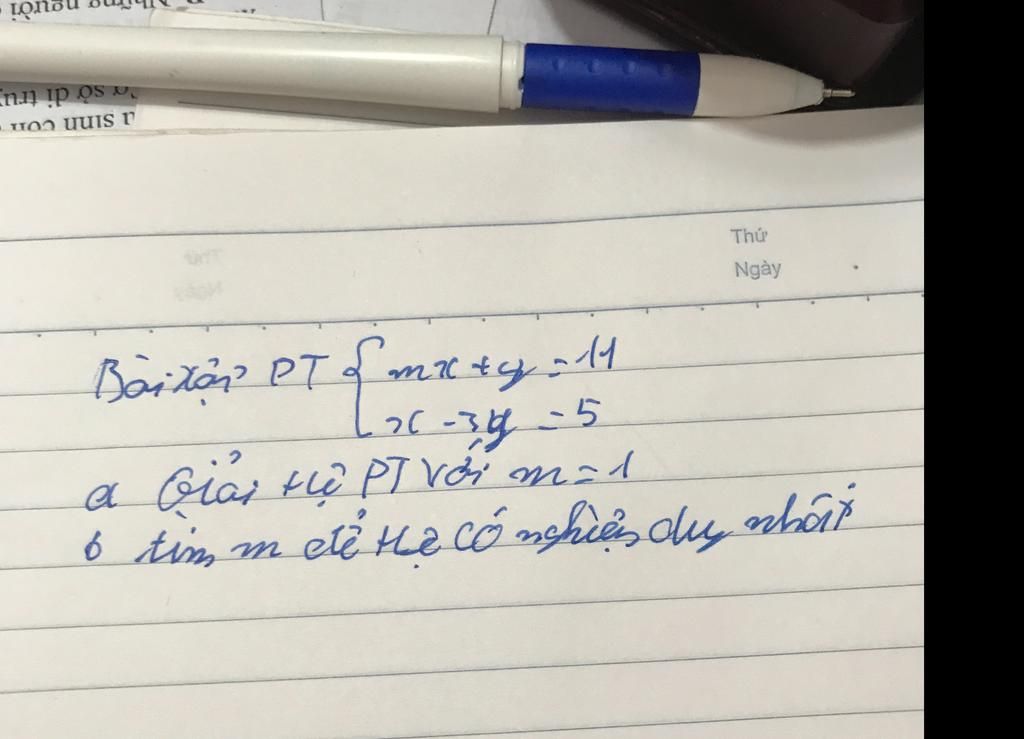 Những người
g sở di truy
u sinh con
Thứ
Ngày
Bài tập PT { mx + y = 11
x - 3y = 5
a Giải Hệ PT với m = 1
b tìm m để Hệ có nghiệm duy nhất